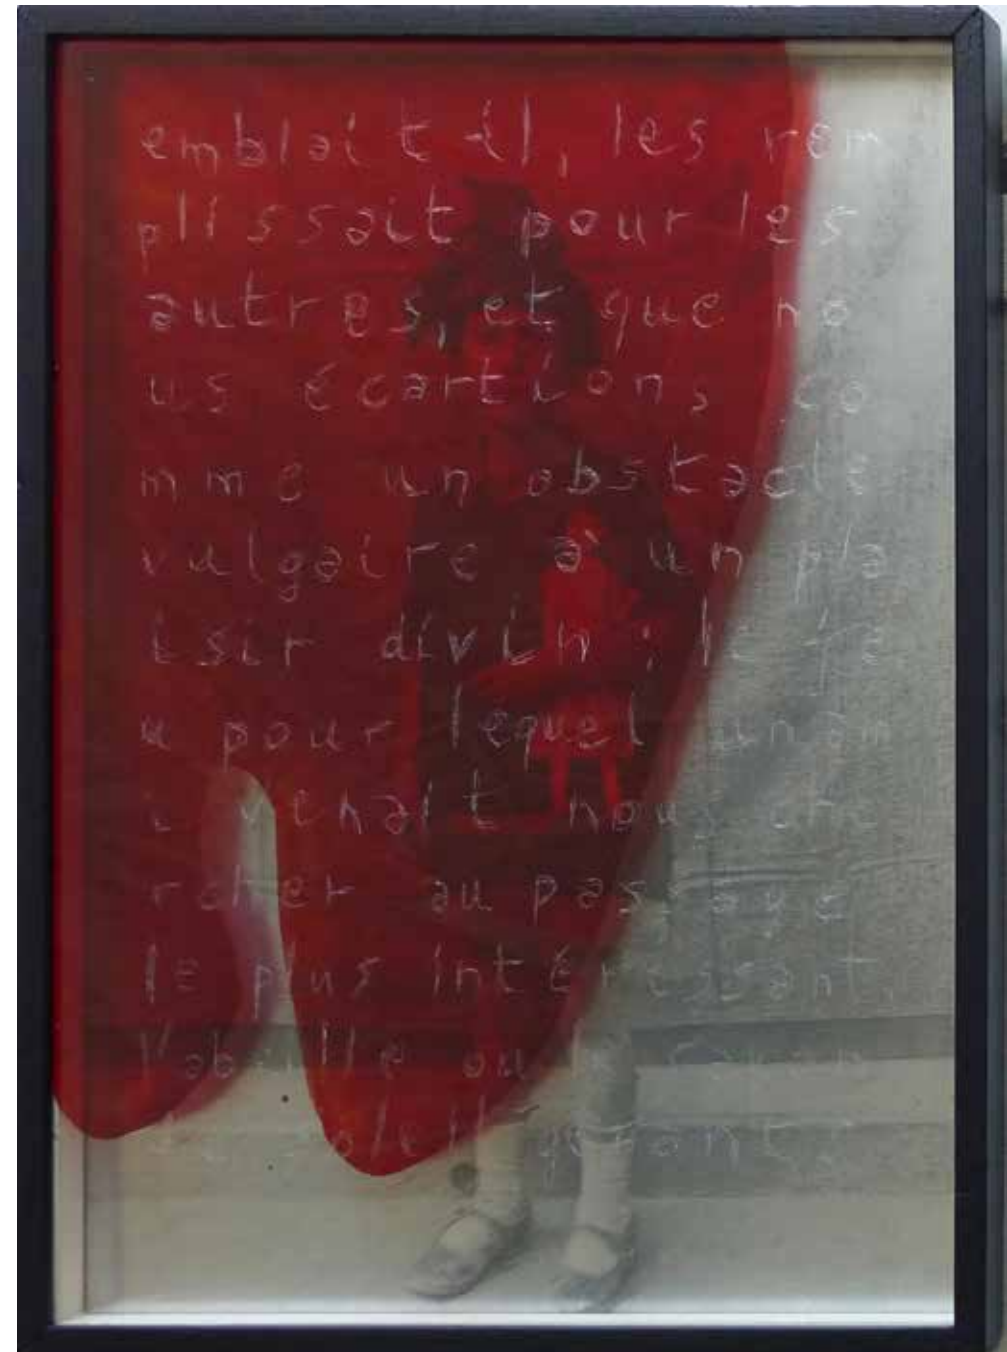 emblait-il, les rem
plissait pour les
autres, et que no
us écartions co
mme un obstacle
vulgaire à un pla
isir divin ; le je
u pour lequel un am
i venait nous che
rcher au passage
le plus intéressant,
l'abeille ou le rayon
de soleil gênant